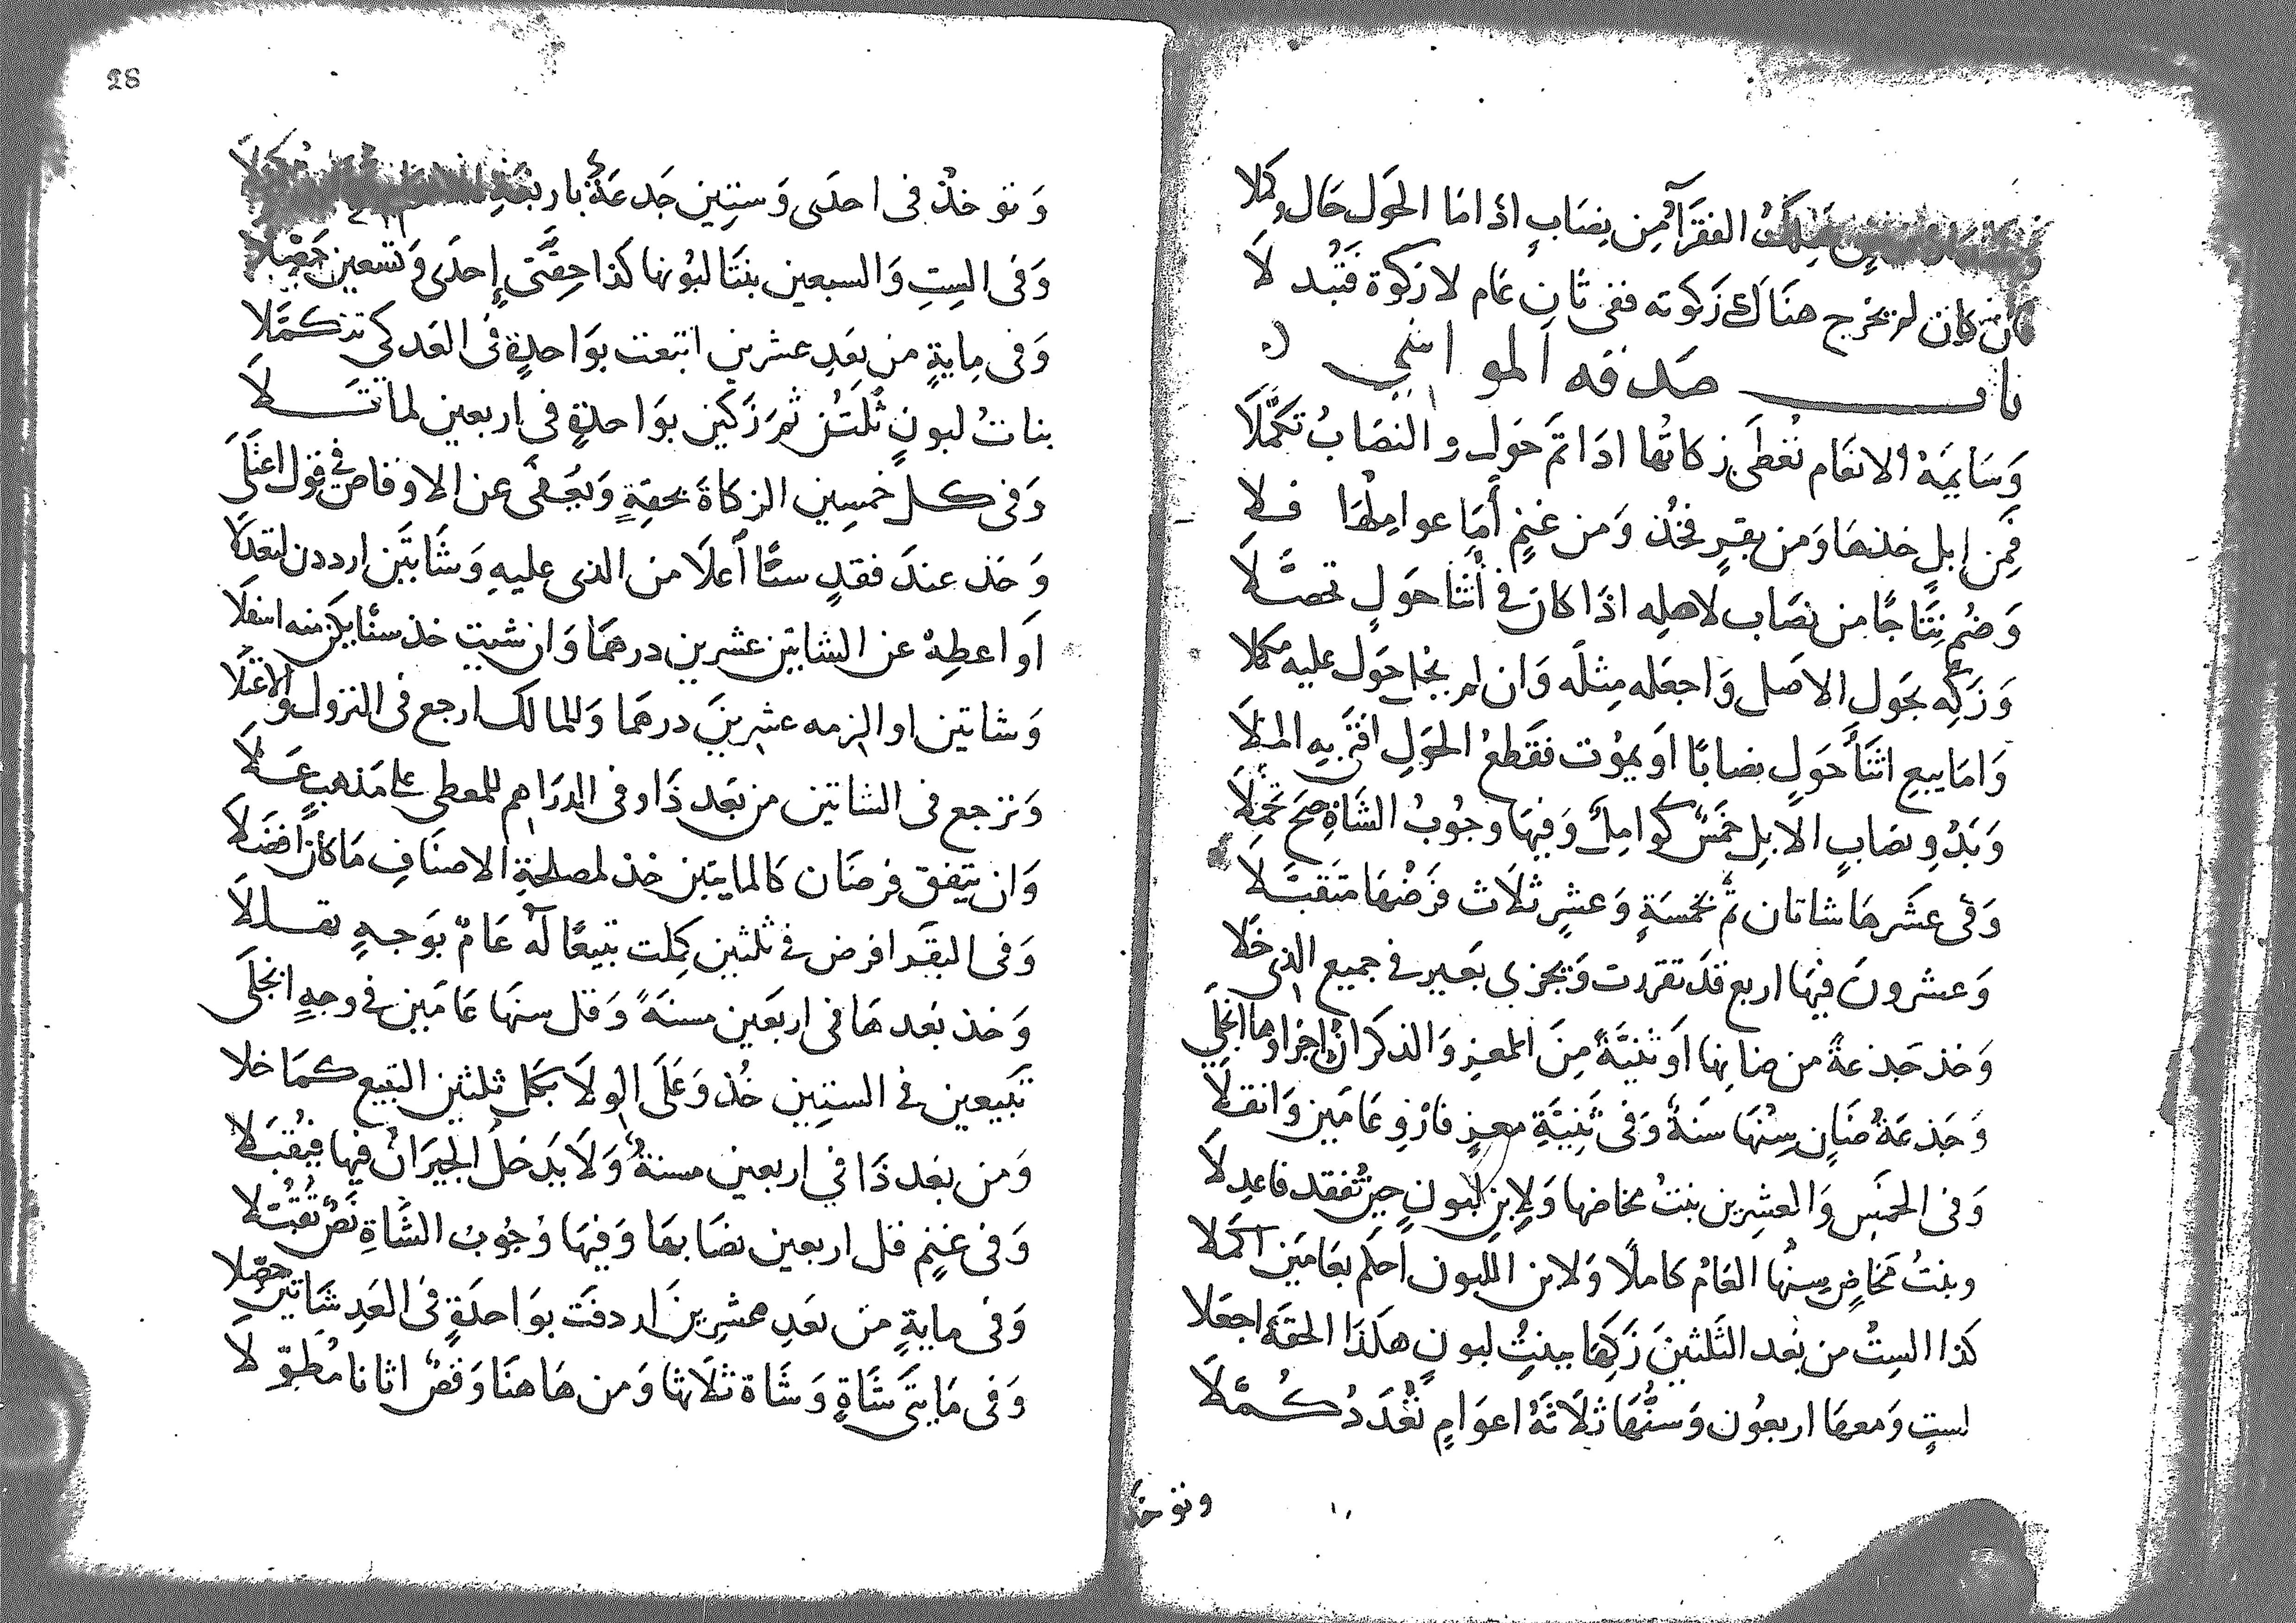 ملك الفقرآ من نصاب اذا ما الحول حال وكملا
كان لم يخرج هناك زكوته ففى ثان عام لا زكوة فتبد لا
باب صدقه المواشي
وَسَايمَة الانعَام تُعْطَى زكاتُها اذا تمَّ حَول والنصَابُ تكمَّلَا
فمِن إبلٍ خذهَا وَمن بقرٍ فخُذ وَمن غنمٍ أمَا عواملُها فلا
وَضُم نِتَاجًا من نصَاب لاصله اذا كان في أثنا حَولٍ تحصَّلا
وَزَكِّه بحَول الاصَل وَاجعَله مِثلَه وَان لم يحل حَول عليه مكملا
وَامَا يبيع اثنَا حَولٍ نصابًا اوَ يمُوت فقَطعُ الحَولِ افتى به الملَا
وَبَدُو نصَابِ الابل خمسٌ كوامِلٌ وَفيهَا وجُوبُ الشاةِ صح تحمّلَا
وَفى عشَرهَا شاتان ثم بخمسَةٍ وَعشرٍ ثلاَث فرَضُهَا متقبّلا
وَعشرون فيهَا اربع قد تقررت وَيجزى بَعير في جميع الذى خَلا
وَخذ جَذعةً من ضانها اوَ ثنيَّةً مِنَ المعز وَالذكرانُ اجزاوها انجلَى
وَجَذعَةُ ضَانٍ سِنُهَا سَنةٌ وَفى ثَنِيَّةِ معزٍ فارْوِ عَامَين وَانقلَا
وَفى الخمسِ وَالعشرين بنتُ مخاضها وَلابن لبونٍ حين تُفقد فاعدِلاَ
وبنتُ مخَاضٍ سنُها العَامُ كاملًا وَلابن اللبون احكم بعَامَين اكملا
كذا الستُ من بَعد الثلثينَ زَكِهَا ببنتِ لبونٍ هكذَا الحقة اجعَلا
لستٍ وَمعهَا اربعُون وَسنُّهَا ثلاَثَةُ اعوَامٍ تُعَدُ كُمَّلَا
وتوخذ
28
وَتوخذُ فى احدَى وَستين جَدعَةٌ باربعَةٍ
وَفى الستِ وَالسبعين بنتَا لبُونها كذا حِقَّتَى إحدَى وَتسعين
وَفى مايةٍ من بعَدِ عشرين اتبعت بوَاحدةٍ فى العَد كى تتكمَّلا
بناتُ لبونٍ ثُلَثُن ثم زَكين بوَاحدةٍ فى اربعين لما تَلَا
وَفى كل خمسين الزكاةَ بحقةٍ وَيُعفَى عن الاوقاص في قول اعتلَى
وَخذ عندَ فقدٍ سنًّا أعلَا من الذى عليهِ وَشاتَين ارددن لتعدلَا
اوَ اعطِهْ عن الشاتين عشرين درهمًا وَان شيت خذ سنًا يكن منه اسفلَا
وَشاتين او الزمه عشرينَ درهما وَللمالك ارجع فى النزول والاعتلَا
وَترجع فى الشاتين من بَعد ذَا وفى الدرَاهم للمعطى على مَذهبٍ عَلَا
وَان يتفق فرضَان كالمايتين خذ لمصلحةِ الاصنَافِ مَا كان افضَلا
وَفى البقَر افرض في ثلثين كملت تبيعًا لَهُ عَامٌ بوَجهٍ تقللا
وَخذ بَعدهَا فى اربَعين مسنةً وَقل سنهَا عَامَين في وجهٍ انجَلَى
تَبيعين في الستين خُذ وَعَلَى الولَا بكل ثلثين التبيع كمَا خلا
وَمن بَعد ذَا في اربعين مسنةٌ وَلَا يدَخلُ الجبرَانُ فيها فيُقبَلا
وَفى غنمٍ قل اربعين نصَابهَا وَفيهَا وُجُوبُ الشاةِ نَصٌ تُقُبّلا
وَفى مايةٍ من بَعدِ عشرينَ اردفت بوَاحدَةٍ فى العَدِ شاتين حصّلا
وَفى مَايتَى شاةٍ وَشَاة ثلَاثها وَمن هَاهنَا وَقصٌ اتانا مُطوّلا